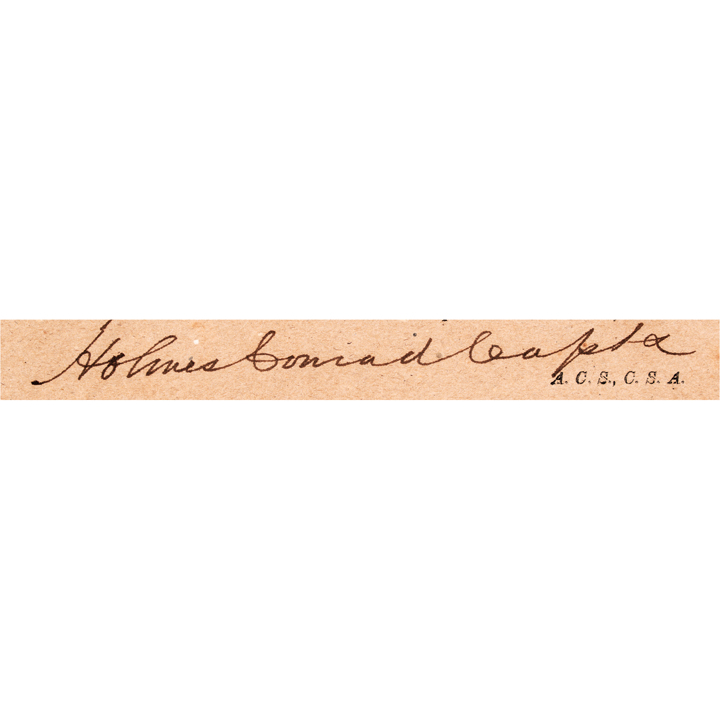 Holmes Conrad Capt &
A. C. S., C. S. A.